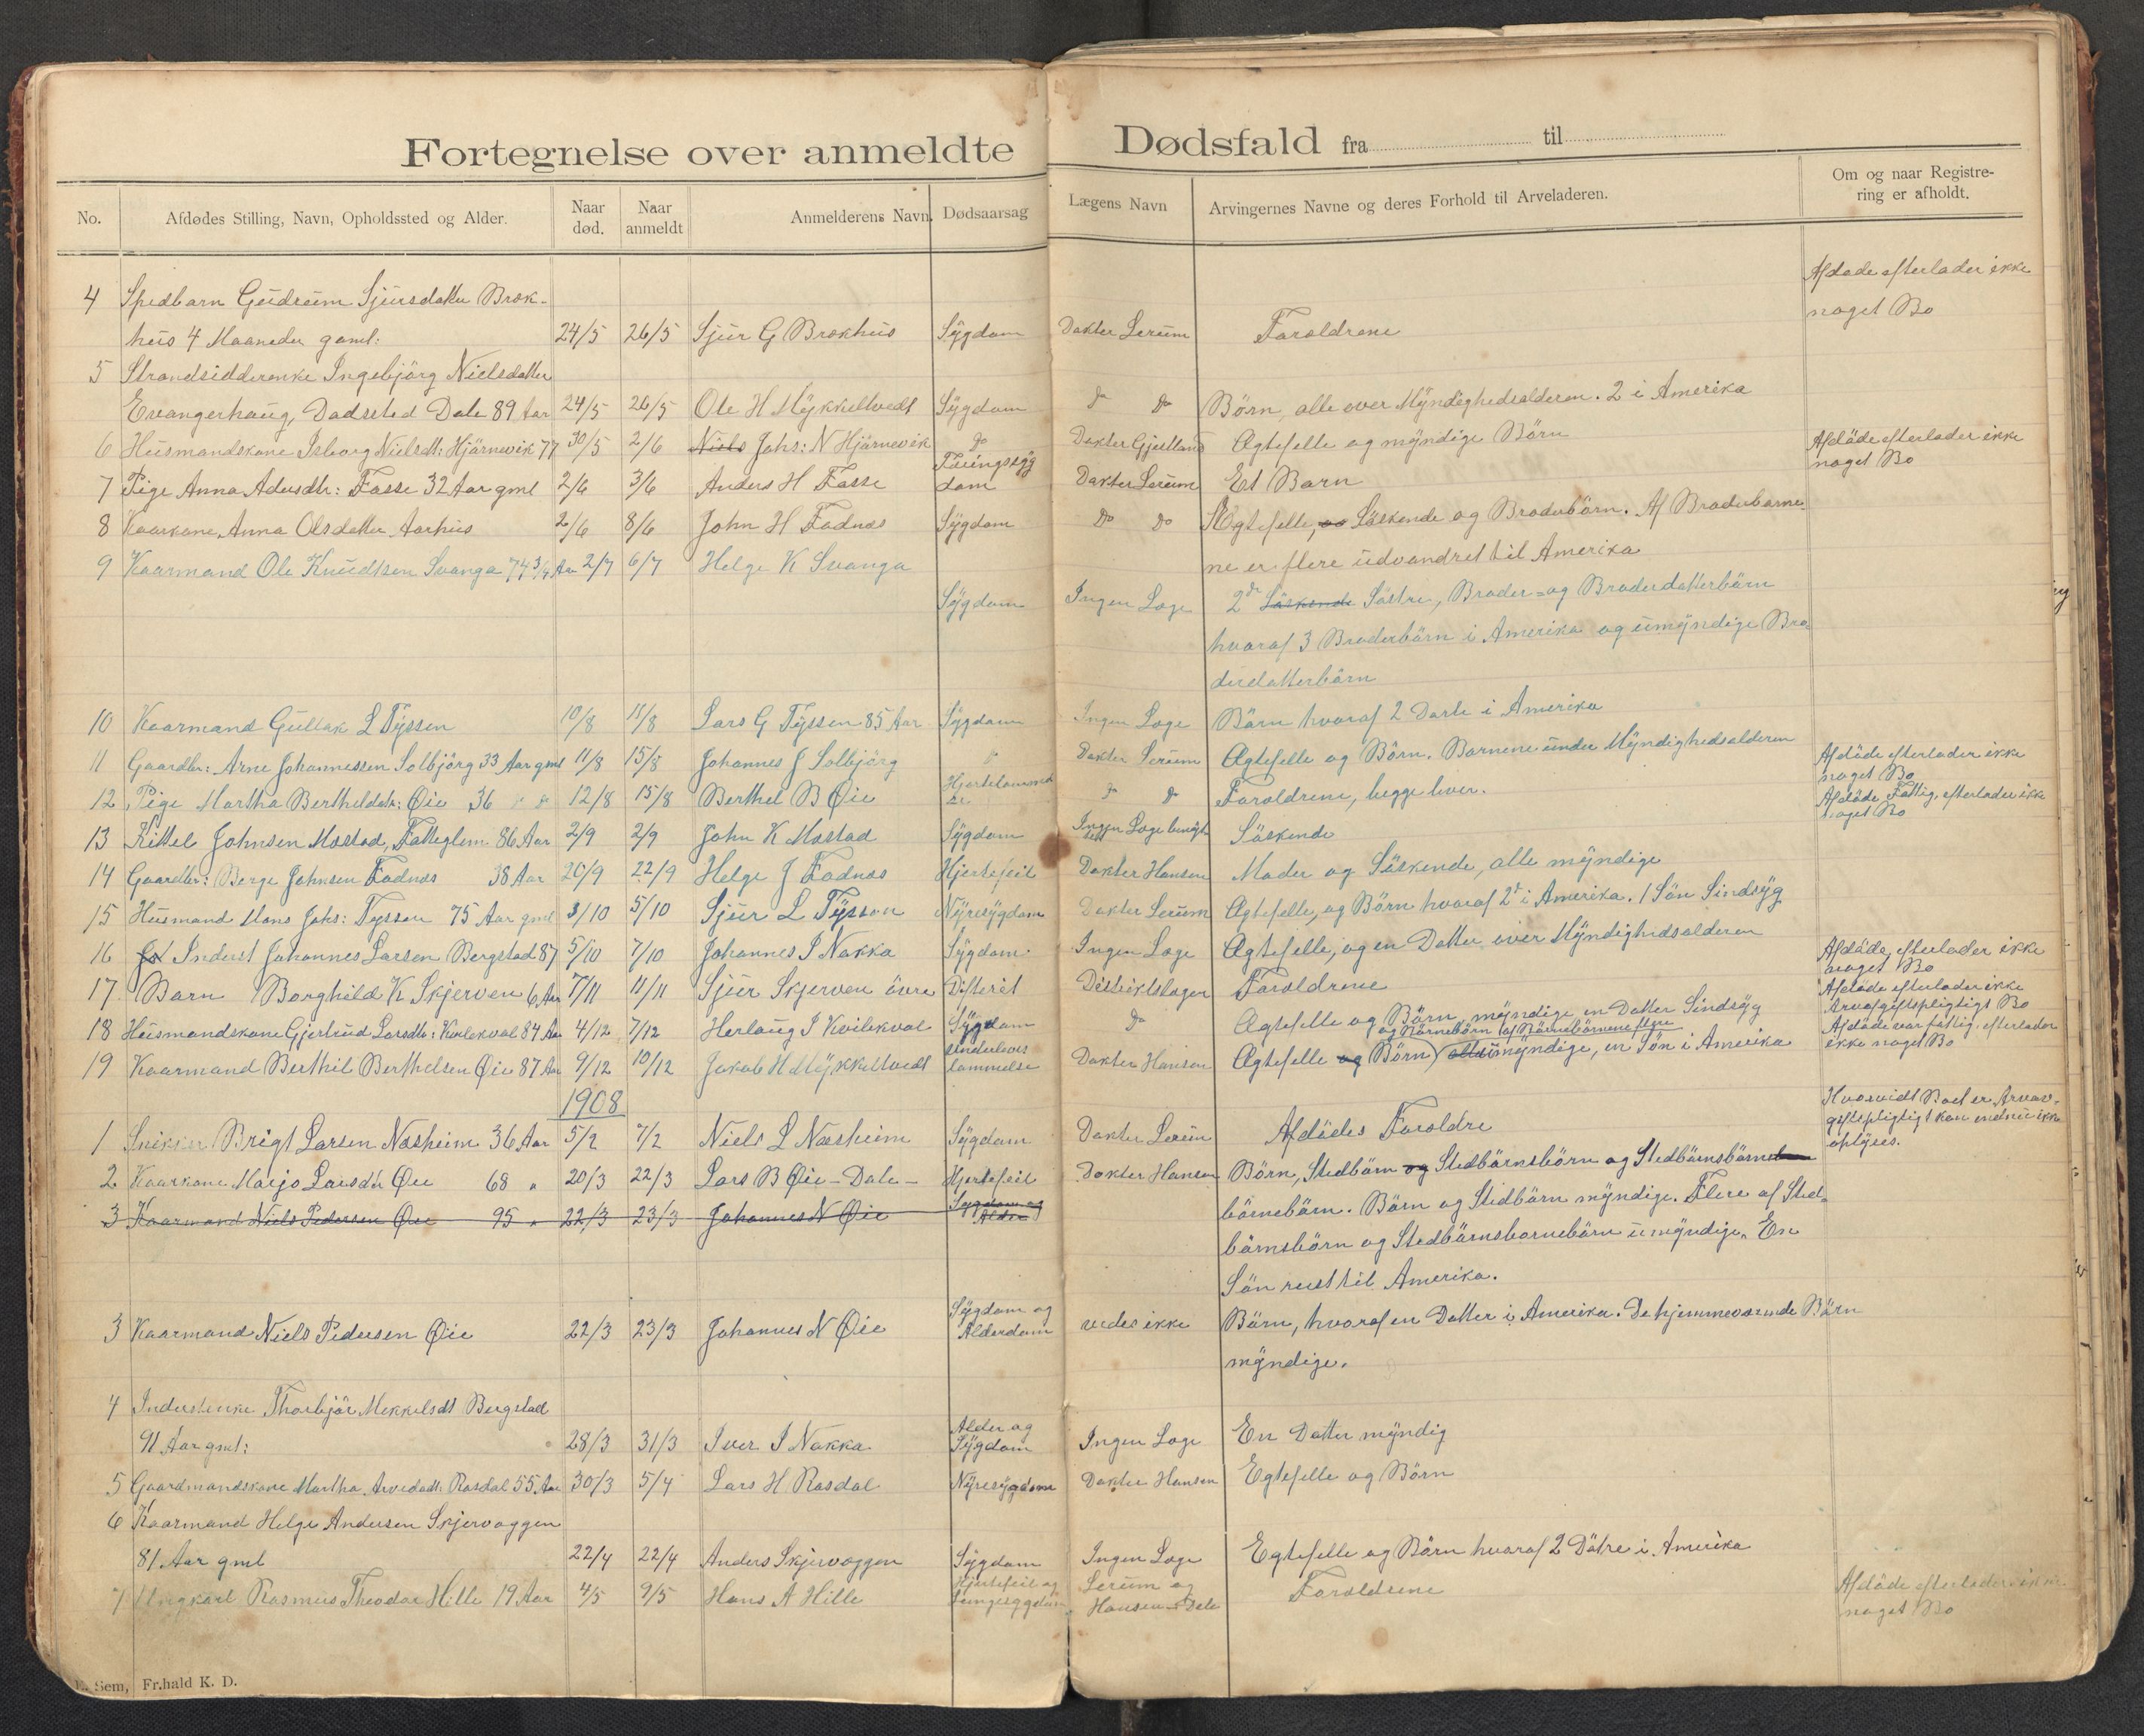 Fortegnelse over anmeldte Dødsfald fra til
No. Afdødes Stilling, Navn, Opholdssted og Alder. Naar død. Naar anmeldt Anmelderens Navn. Dødsaarsag Lægens Navn Arvingernes Navne og deres Forhold til Arveladeren. Om og naar Registre-
ring er afholdt.
Afdøde efterlader ikke
4 Spedbarn Gudrum Sjursdatter Brok-
noget Bo
hus 4 Maaneder gaml: 24/5 26/5 Sjur G Brokhus Sygdom Dokter Lerum Foroldrene
5 Strandsidderenke Ingebjörg Nielsdatter
Evangerhaug, Dødssted Dale 89 Aar 24/5 26/5 Ole H Mykkeltvedt Sygdom do do Børn, alle over Myndighedsalderen. 2 i Amerika
6 Husmandskone Isborg Nielsdt: Hjörnevik 77 30/5 2/6 Niels Johs: N Hjörnevik do Dokter Gjelland Ægtefelle og myndige Børn Afdöde efterlader ikke
noget Bo
7 Pige Anna Adersdtr: Fosse 32 Aar gml 2/6 3/6 Anders H Fosse Tæringssyg
dom Dokter Lerum Et Barn
8 Kaarkone Anna Olsdatter Aarhus 2/6 8/6 John H Fadnæs Sygdom Do Do Ægtefelle, og Söskende og Broderbörn. Af Broderbarne
ne er flere udvandret til Amerika
9 Kaarmand Ole Knudtsen Svanga 74 3/4 Aar 2/7 6/7 Helge K Svanga
Sygdom Ingen Læge 2de Söskende Söstre, Broder= og Broderdatterbörn
hvoraf 3 Broderbörn i Amerika og umyndige Bro
derdatterbörn
10 Kaarmand Gullak L Tyssen 10/8 11/8 Lars G Tyssen 85 Aar Sygdom Ingen Læge Börn hvoraf 2 i Amerika
11 Gaardbr: Arne Johannessen Solbjörg 33 Aar gml 11/8 15/8 Johannes J Solbjörg do Dokter Lerum Ægtefelle og Börn. Barnene under Myndighedsalderen Afdöde efterlader ikke
noget Bo
12 Pige Martha Bertheldatr: Øie 36 do do 12/8 15/8 Berthel B Øie Hjertelammel
se do do Foroldrene, begge lever. Afdöde Fattig, efterlader ikke
noget Bo
13 Kittel Johnsen Mostad, Fatteglem. 86 Aar 2/9 2/9 John K Mostad Sygdom Ingen Læge benyt
tet Söskende
14 Gaardbr: Børge Johnsen Fadnæs 38 Aar 20/9 22/9 Helge J Fadnæs Hjertefeil Dokter Hansen Moder og Söskende, alle myndige
15 Husmand Mons Johs: Tyssen 75 Aar gml 3/10 5/10 Sjur L Tyssen Nyresygdom Dokter Lerum Ægtefelle, og Börn hvoraf 2de i Amerika. 1 Sön Sindsyg
16 Inderst Johannes Larsen Bergstad 87 5/10 7/10 Johannes I Nakka Sygdom Ingen Læge Ægtefelle, og en Datter over Myndighedsalderen Afdöde, efterlader ikke
noget Bo
17 Barn Borghild K Skjerven 6 Aar 7/11 11/11 Sjur Skjerven övre Difterit Distriktslægen Foroldrene Afdöde efterlader ikke
Arveafgiftspligtigt Bo
18 Husmandskone Gjertrud Larsdtr: Kvilekval 84 Aar 4/12 7/12 Herlaug I Kvilekval Sygdom do Ægtefelle og Börn, myndige, en Datter Sindsyg Afdöde var fattig, efterlader
ikke noget Bo
og Börnebörn (af Börnebörnene flere
19 Kaarmand Berthil Berthelsen Øie 87 Aar 9/12 10/12 Jakob H Mykkeltvedt Underlivs
lammelse Dokter Hansen Ægtefelle og Börn alle umyndige, en Sön i Amerika
1908
1 Snikker Brigt Larsen Næsheim 36 Aar 5/2 7/2 Niels L Næsheim Sygdom Dokter Lerum Afdödes Foroldre Hvorvidt Boet er Arveav-
giftspligtigt kan endnu ikke
oplyses.
2 Kaarkone Marjo Larsdtr Øie 68 " 20/3 22/3 Lars B Øie - Dale - Hjertefeil Dokter Hansen Börn, Stedbörn og Stedbörnsbörn og Stedbörnsbörne
börnebörn. Börn og Stedbörn myndige. Flere af Sted-
3 Kaarmand Niels Pedersen Øie 95 " 22/3 23/3 Johannes N Øie Sygdom og
Alder
börnsbörn og Stedbörnsbornebörn umyndige. En
Sön reist til Amerika.
3 Kaarmand Niels Pedersen Øie 22/3 23/3 Johannes N Øie Sygdom og
Alderdom vedes ikke Börn, hvoraf en Datter i Amerika. De hjemmeværende Börn
myndige.
4 Inderstenke Thorbjör Mekkelsdt Bergstad
91 Aar gml: 28/3 31/3 Iver I Nakka Alder og
Sygdom Ingen Læge En Datter myndig
5 Gaardmandskone Martha Arvedadt: Rasdal 55 Aar 30/3 5/4 Lars H Rasdal Nyresygdom Dokter Hansen Egtefelle og Börn
6 Kaarmand Helge Andersen Skjervaggen
81 Aar gml 22/4 22/4 Anders Skjervaggen Sygdom Ingen Læge Egtefelle og Börn hvoraf 2 Dötre i Amerika
7 Ungkarl Rasmus Theodor Hille 19 Aar 4/5 9/5 Hans A Hille Hjertefeil og
Lungesygdom Lerum og
Hansen - Dale Foroldrene Afdöde efterlader ikke
noget Bo
Sem, Fr.hald K. D.